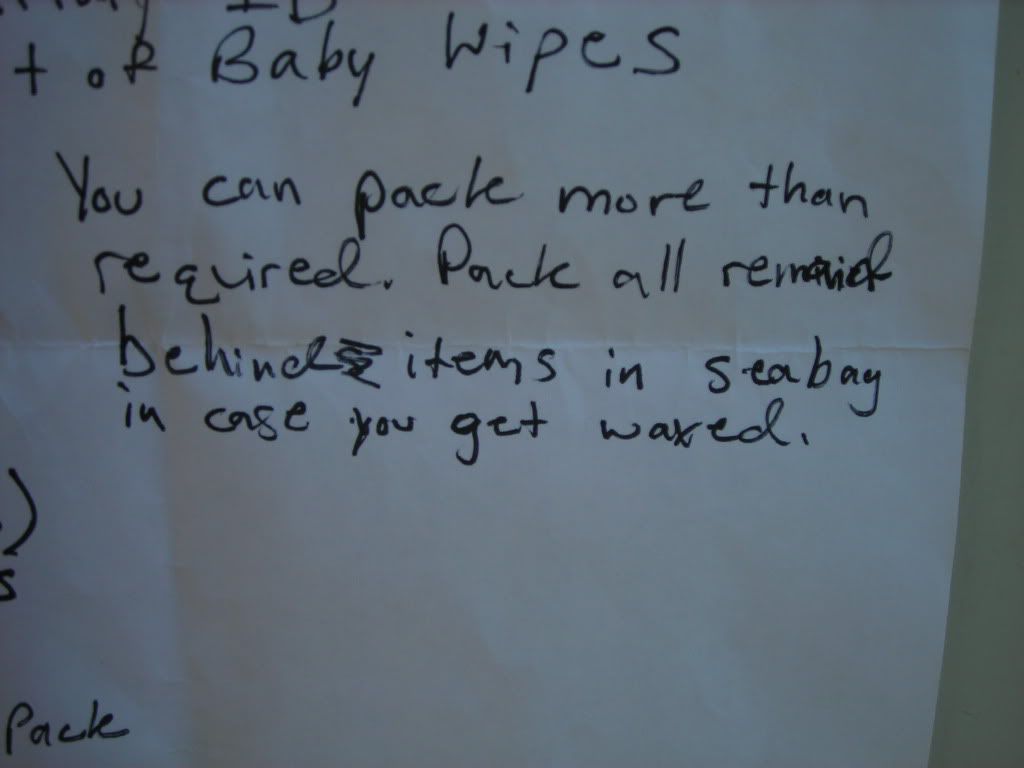 ID
+ or Baby Wipes
You can pack more than
required. Pack all remaind
behind items in seabag
in case you get waxed.
)
s
Pack